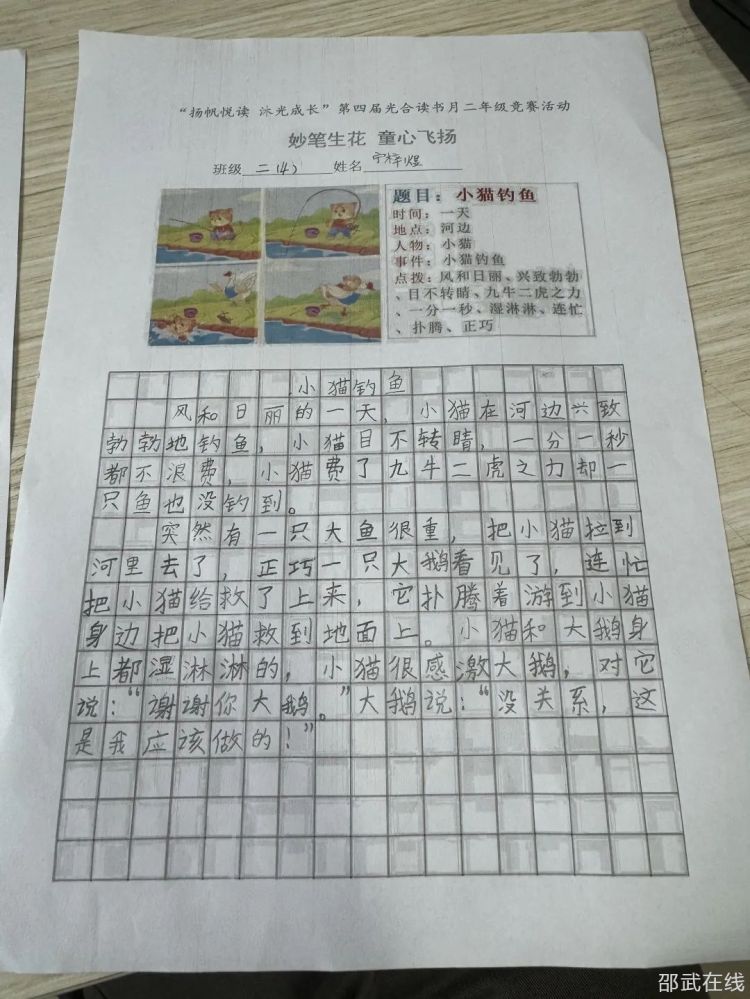 “扬帆悦读 沐光成长”第四届光合读书月二年级竞赛活动
妙笔生花 童心飞扬
班级 二(4) 姓名 宁梓煜
题目：小猫钓鱼
时间：一天
地点：河边
人物：小猫
事件：小猫钓鱼
点拨：风和日丽、兴致勃勃
、目不转睛、九牛二虎之力
、一分一秒、湿淋淋、连忙
、扑腾、正巧
小猫钓鱼
风和日丽的一天，小猫在河边兴致
勃勃地钓鱼，小猫目不转睛，一分一秒
都不浪费，小猫费了九牛二虎之力却一
只鱼也没钓到。
突然有一只大鱼很重，把小猫拉到
河里去了，正巧一只大鹅看见了，连忙
把小猫给救了上来，它扑腾着游到小猫
身边把小猫救到地面上。小猫和大鹅身
上都湿淋淋的，小猫很感激大鹅，对它
说：“谢谢你大鹅。”大鹅说：“没关系，这
是我应该做的！”
邵武在线